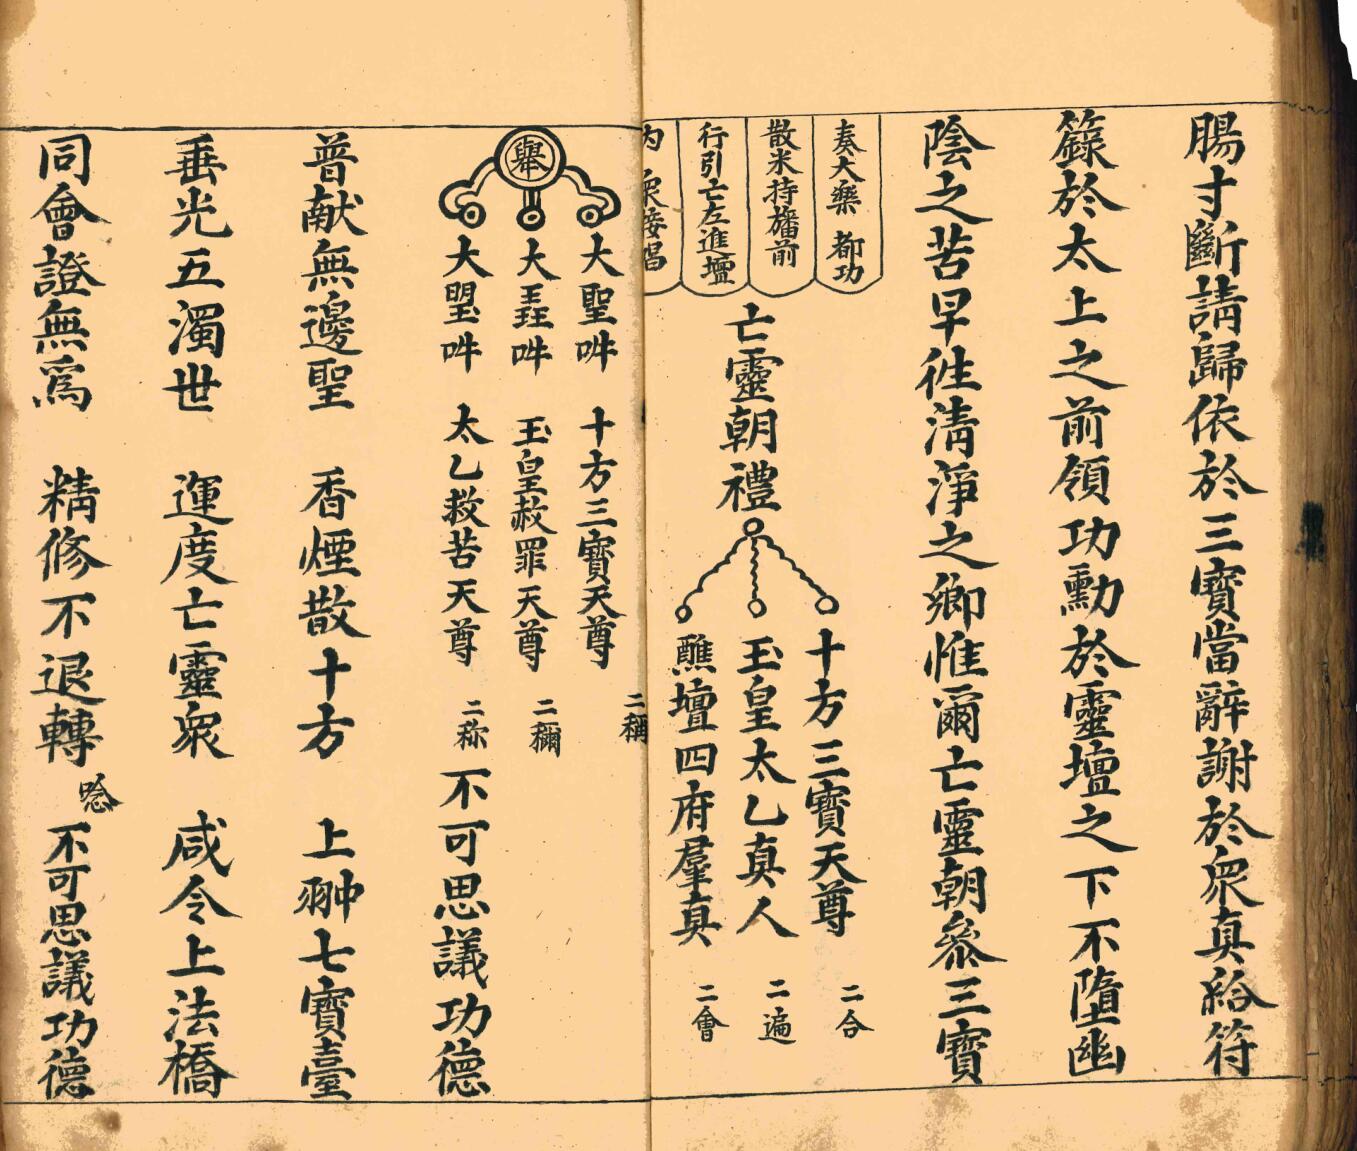 腸寸斷請歸依於三寶當辭謝於衆真給符
籙於太上之前領功勳於靈壇之下不墮幽
陰之苦早徃清淨之鄉惟爾亡靈朝叅三寶
奏大樂 都功
散米持旛前
行引亡左進壇
內 衆接唱
亡靈朝禮
十方三寶天尊 二合
玉皇太乙真人 二遍
醮壇四府羣真 二會
舉
大聖吽 十方三寶天尊 二稱
大 吽 玉皇赦罪天尊 二稱
大 吽 太乙救苦天尊 二称
不可思議功德
普献無邊聖 香煙散十方 上翀七寶臺
垂光五濁世 運度亡靈衆 咸令上法橋
同會證無爲 精修不退轉 唸 不可思議功德